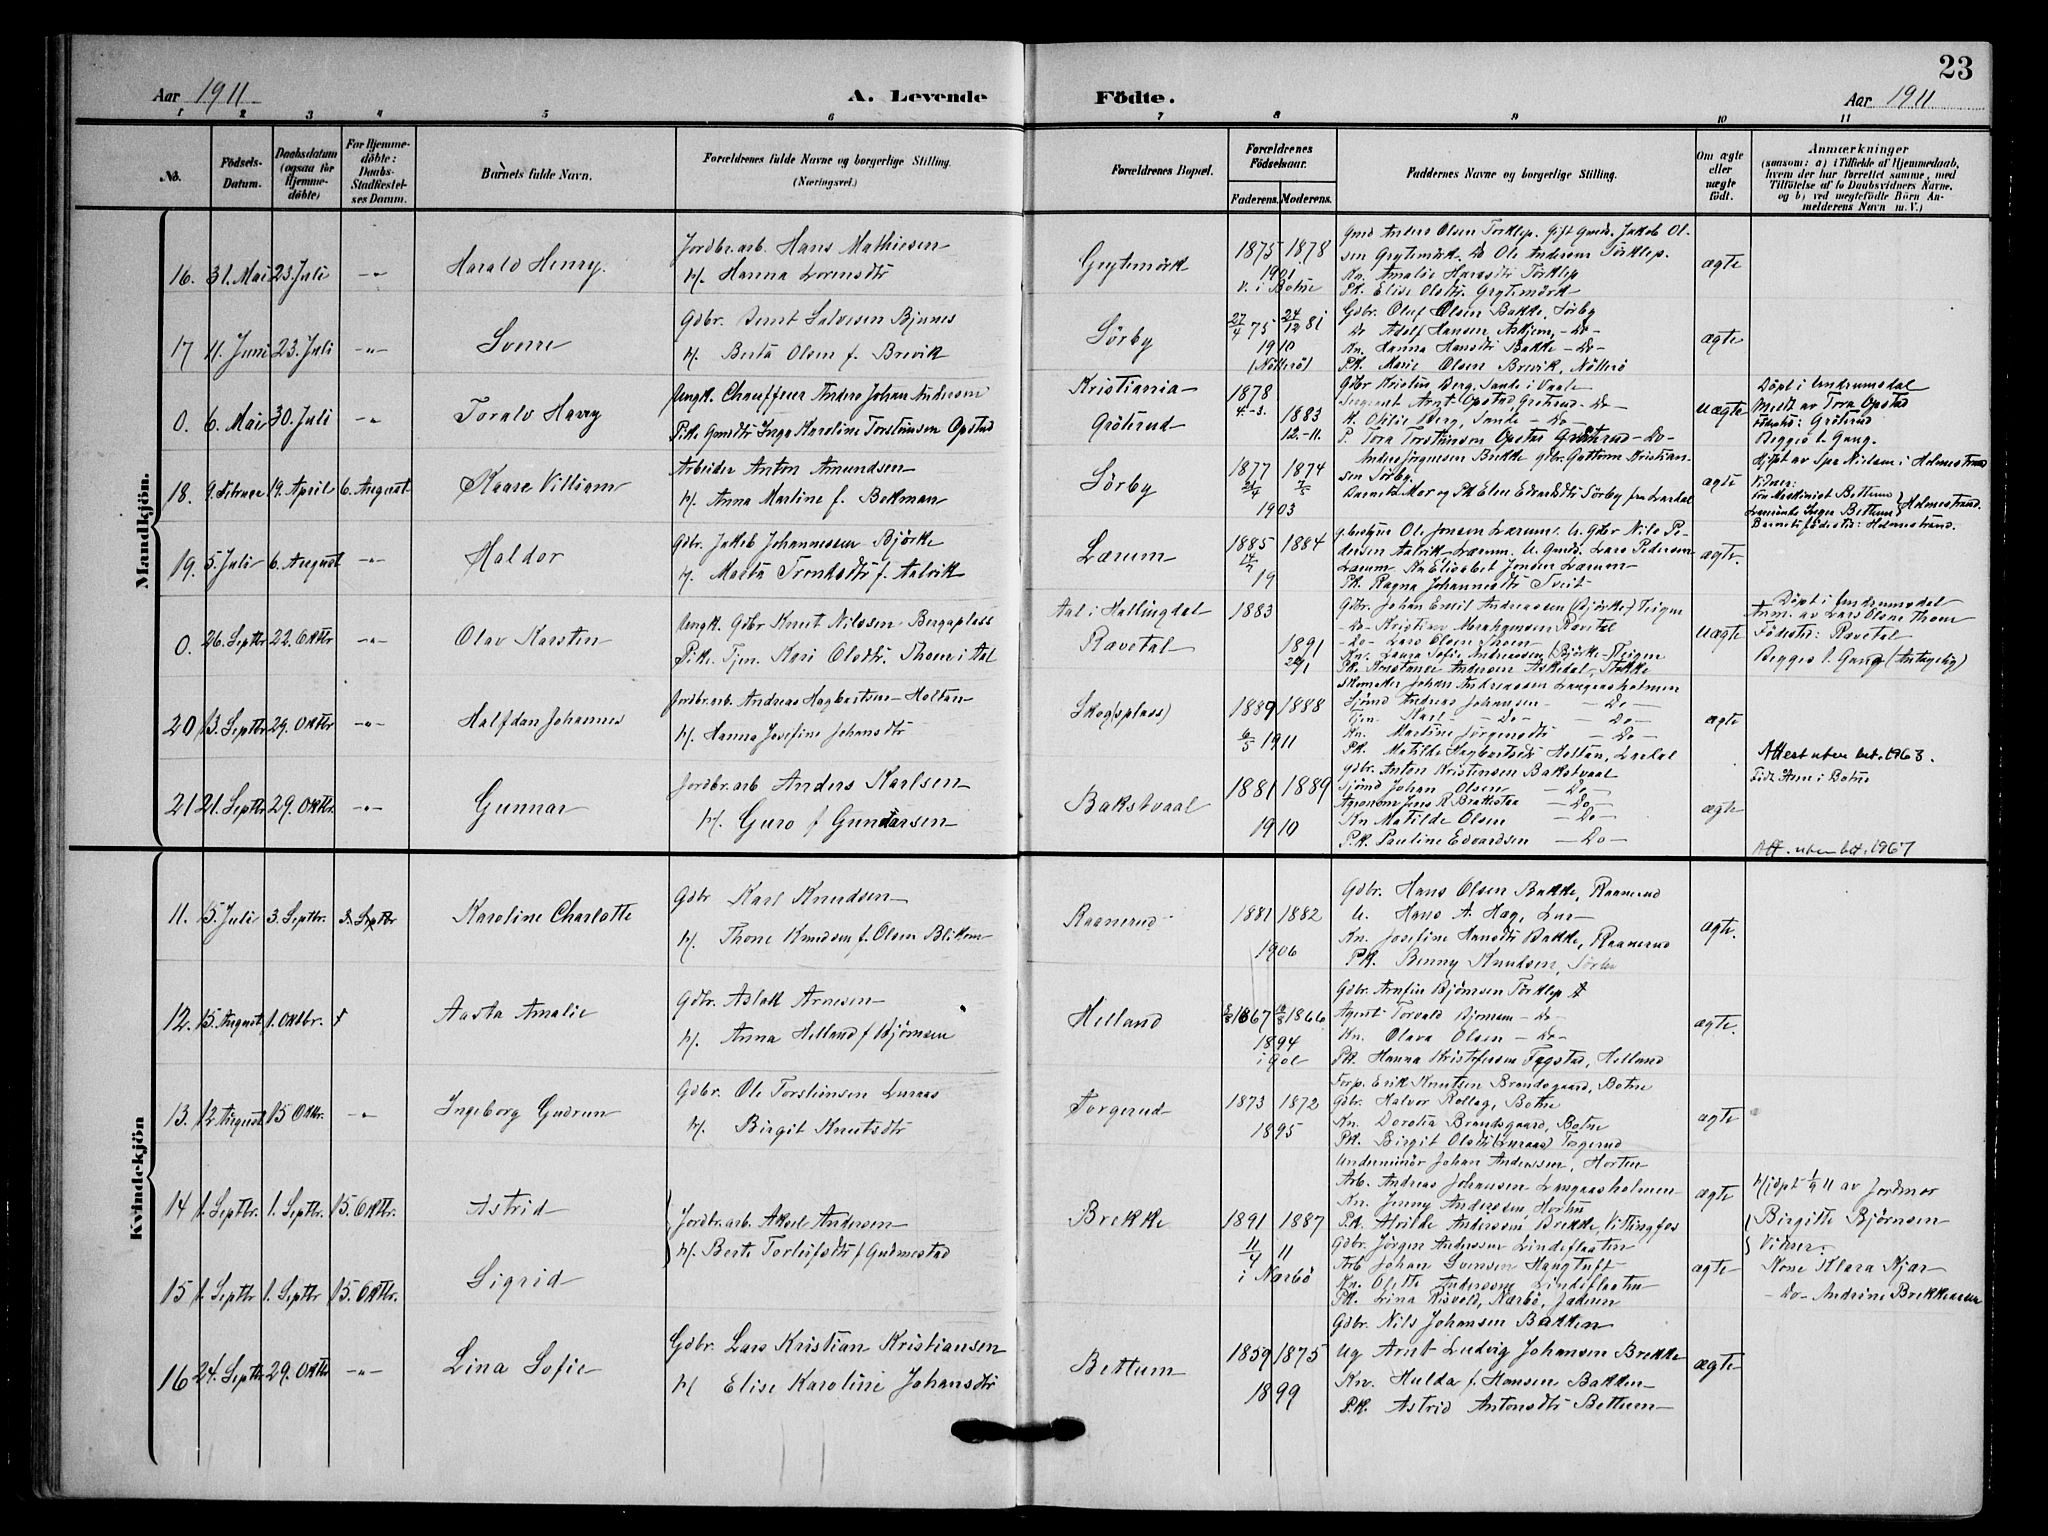 23
Aar 1911
A. Levende
Födte.
Aar 1911
1 2 3 4 5 6 7 8 9 10 11
No.
Födsels-Datum.
Daabsdatum (ogsaa for Hjemmedöbte)
For Hjemmedöbte: Daabs-Stadfæstelses Datum.
Barnets fulde Navn.
Forældrenes fulde Navne og borgerlige Stilling.
(Næringsvei.)
Forældrenes Bopæl.
Forældrenes Födselsaar.
Faderens. Moderens.
Faddernes Navne og borgerlige Stilling.
Om ægte eller uægte födt.
Anmærkninger
(saasom: a) i Tilfælde af Hjemmedaab, hvem der har forrettet samme, med Tilföielse af to Daabsvidners Navne, og b) ved uegtefödte Börn Anmelderens Navn m. V.)
Mandkjön.
16. 31. Mai 23. Juli -"- Harald Henry
Jordbr.arb. Hans Mathiesen
H/. Hanna Lorensdtr
Grytemörk
1875 1878
1901
v. i Botne
Gmd Anders Olsen Torklep. Gift Gmds. Jakob Ol-
sen Grytemörk. Do Ole Andersen Torklep.
Kn. Amalie Hansdtr Torklep
Pk. Elise Olsdtr. Grytemörk
ægte
17 11. Juni 23. Juli -"- Sverre
Gdbr. Bernt Salvesen Bjunes
H/. Berta Olsen f. Brevik
Sörby
27/4 75 24/12 81
1910
(Nötterö)
Gdbr. Oluf Olsen Bakke, Sörby
Do Adolf Hansen, Askjem, -Do-
Kn. Hanna Hansdtr Bakke -Do-
Pk. Marie Olsen Brevik, Nötterö
ægte
0. 6. Mai 30. Juli -"- Toralv Harry
Ungk. Chauffeur Anders Johan Andersen
Pike Gmdtr Inga Karoline Torstensen Opstad
Kristiania
Gröterud
1878
4.-3. 1883
12.-11.
Gdbr Kristius Berg, Sande i Vaale
Sergeant Arnt Opstad, Gröterud -Do-
K. Otilie Berg, Sande -Do-
P. Tora Torstensen Opstad Gröterud -Do-
uægte
Döpt i Undrumsdal
Meldt av Tora Opstad
Födested: Gröterud
Begges 1. Gang.
18. 9. Februar 19. April 6. August Kaare Villiam
Arbeider Anton Amundsen
H/. Anna Martine f. Bekman
Sörby
1877 1874
24/4 7/5
1903
Anders Jörgensen Brekke gdbr. Guttorm Kristian-
sen Sörby.
Barnets Mor og Pk Elen Edvardsdtr Sörby fra Lardal
ægte
Hjdpt av Spr Nielsen i Holmestrand
Vidner:
Fru Maskinist Bettum
Lærerinde Inger Bettum } Holmestrand.
Barnets födested: Holmestrand.
19. 5. Juli 6. August -"- Haldor
Gdbr. Jakob Johannessen Björke
H/. Marta Trondsdtr f. Aalvik
Lærum
1885 1884
14/7
19
Ole Jonsen Lærum. U. Gdbr Nils Pe-
dersen Aalvik Lærum. U. Gmds. Lars Pedersen
Lærum. Kn Elisabet Jonsen Lærum-
Pk. Ragna Johannesdtr Tveit
ægte.
0. 26. Septbr 22. Oktbr -"- Olav Karsten
Ungk. Gdbr Knut Nilssen Bergaplass
Pike. Tjen. Kari Olsdtr. Thoen i Aal
Aal i Hallingdal
Ravetal
1883
1891
Gdbr. Johan Emil Andreassen (Björke) Teigen
-Do- Kristian Abrahamsen Ravetal
-Do- Lars Olsen Thoen
Kn. Laura Sofie Andreassen (Björke) Teigen
Pk. Kristense Andersen Askedal, Stokke
uægte
Döpt i Undrumsdal
Anm. av Lars Olsen Thoen
Födestd: Ravetal
Begges 1. Gang (Antagelig)
20 13. Septbr 29. Oktbr -"- Halfdan Johannes
Jordbr.arb. Andreas Hagbartsen Holtan
H/. Hanna Josefine Johansdtr
Skog(splass)
1889 1888
6/5 1911
Skomaker Johan Andreassen Langaasholmen
Sjömd Andreas Johansen -Do-
Tjen. Karl -Do- -Do-
Kn. Martine Jörgensdtr -Do-
Pk. Matilde Hagbartsdtr Holtan, Lardal
ægte
Attest uten bet. 1963.
21 21. Septbr 29. Oktbr. -"- Gunnar
Jordbr.arb Anders Karlsen
H/. Guro f Gundersen
Bakstvaal
1881 1889
1910
Gdbr. Anton Kristensen Bakstvaal
Sjömd Johan Olsen -Do-
Agronom Jens R. Brækstaa -Do-
Kn Matilde Olsen -Do-
Pk. Pauline Edvardsen -Do-
ægte
Född Hem i Botne
Att. uten bet. 1967
Kvindekjön
11. 15. Juli 3. Septbr. 3. Septbr Karoline Charlotte
Gdbr Karl Knudsen
H/. Thone Knudsen f. Olsen Bliksm
Raanerud
1881 1882
1906
Gdbr. Hans Olsen Bakke, Raanerud
U. Hans A. Hag, Lur-
Kn. Josefine Hansdtr Bakke, Raanerud
Pk. Benny Knudsen, Sörby
ægte.
12. 15. August 1. Oktbr. Aasta Amalie
Gdbr. Aslak Arnesen
H/. Anna Helland f Bjömsen
Helland
1867 1866
1894
i Gol
Gdbr. Arnfin Bjömsen Torklep
Agent Torvald Bjömsen -Do-
Kn. Olava Olsen -Do-
Pk. Hanna Kristofersen Fegstad, Helland
ægte.
13. 12 August 15 Oktbr. -"- Ingeborg Gudrun
Gdbr. Ole Torsteinsen Luraas
H/. Birgit Knutsdtr
Torgerud
1873 1872
1895
Forp. Erik Knutsen Brandsgaard, Botne
Gdbr. Halvor Rollag, Botne
Kn. Dorotea Brandsgaard, Botne
Pk. Birgit Olsdtr (Luraas) Togerud
ægte
14 1. Septbr. 1. Septbr. 15. Oktbr. Astrid
Jordbr.arb. Aksel Andersen
H/. Berte Torleifsdtr f Gudmestad
Brekke
1891 1887
11/4 11
i Nærbö
Underminör Johan Anderssen, Horten
Arb. Andreas Johansen Langaasholmen
Kn. Jenny Anderssen, Horten
Pk. Alvilde Anderssen Brekke, Vittingfos
ægte
Hjdöpt 1/9 11 av Jordmor
Birgitte Björnsen
Vidner:
15 1. Septbr 1. Septbr 15. Oktbr. Sigrid
Gdbr. Jörgen Anderssen Lindeflaaten
Arb Johan Svensen Haugtuft
Kn. Olette Anderssen Lindeflaaten
Pk. Lina Risvold, Nærbö, Jæderen
ægte
Kone Klara Kjær
-Do- Andrine Brekkeaasen
16 24. Septbr 29. Oktbr -"- Lina Sofie
Gdbr. Lars Kristian Kristiansen
H/ Elise Karoline Johansdtr
Bettum
1859 1875
1899
Gdbr. Nils Johansen Bakken
Ug Arnt Ludvig Johansen Brekke
Kn. Hulda f. Hansen Bakken
Pk. Astrid Antonsdtr Bettum
ægte